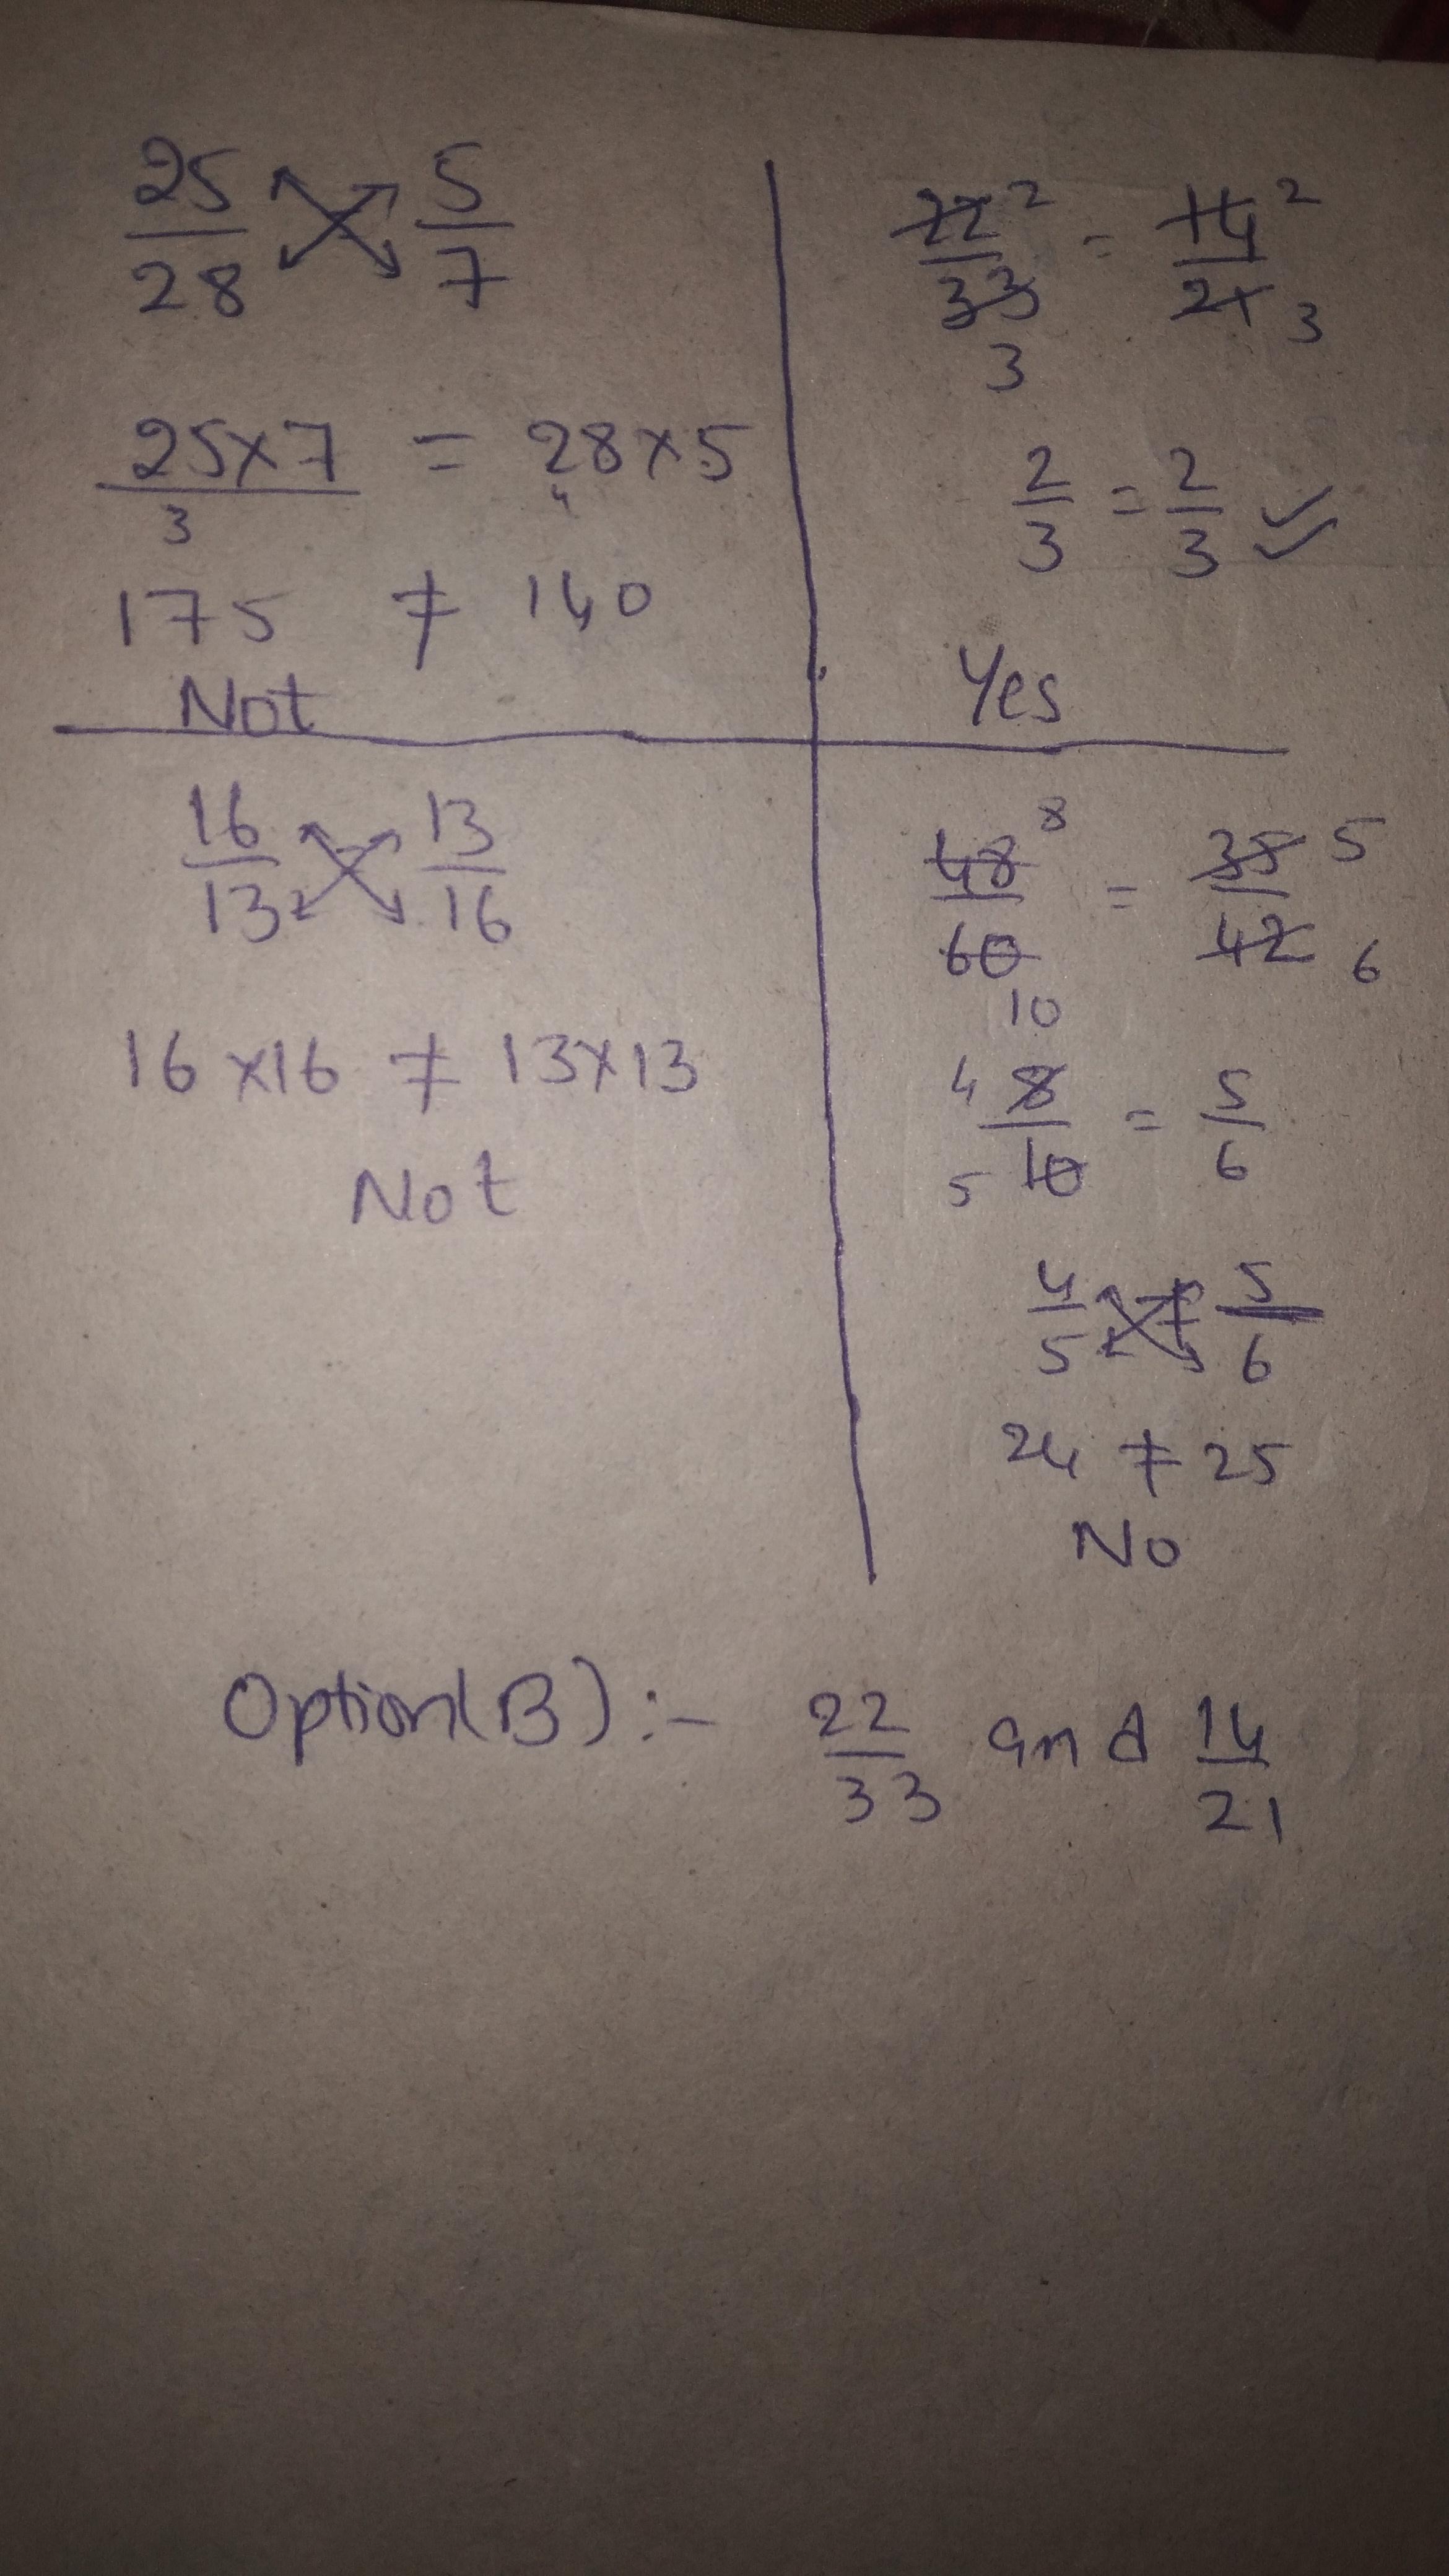 25/28 5/7
25×7 = 28×5
3 4
175 ≠ 140
Not
22/33 2 = 14/21 2
3 3
2/3 = 2/3 ✓✓
Yes
16/13 13/16
16×16 ≠ 13×13
Not
48/60 8 = 35/42 5
10 6
4 8/10 = 5/6
5
4/5 ≠ 5/6
24 ≠ 25
No
Option(B) :- 22/33 and 14/21